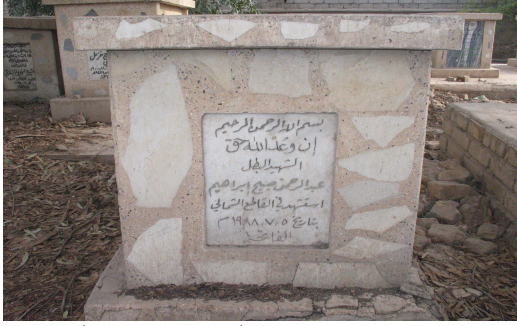 بسم الله الرحمن الرحيم
إن وعد الله حق
الشهيد البطل
عبد الرحمن صبيح إبراهيم
استشهد في القاطع الشمالي
بتاريخ ٥ ٧ ١٩٨٨ م
الفاتحة